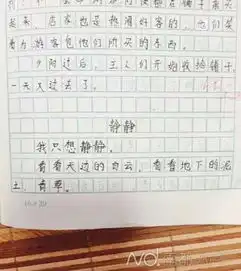 起来。店家也是热情好客的。他们笑
着为游客包他们所买的东西。
夕阳过后，主人们开始收拾铺子，
一天又过去了。
静静
我只想静静。
看看天边的白云，看看地下的泥
土，青草。